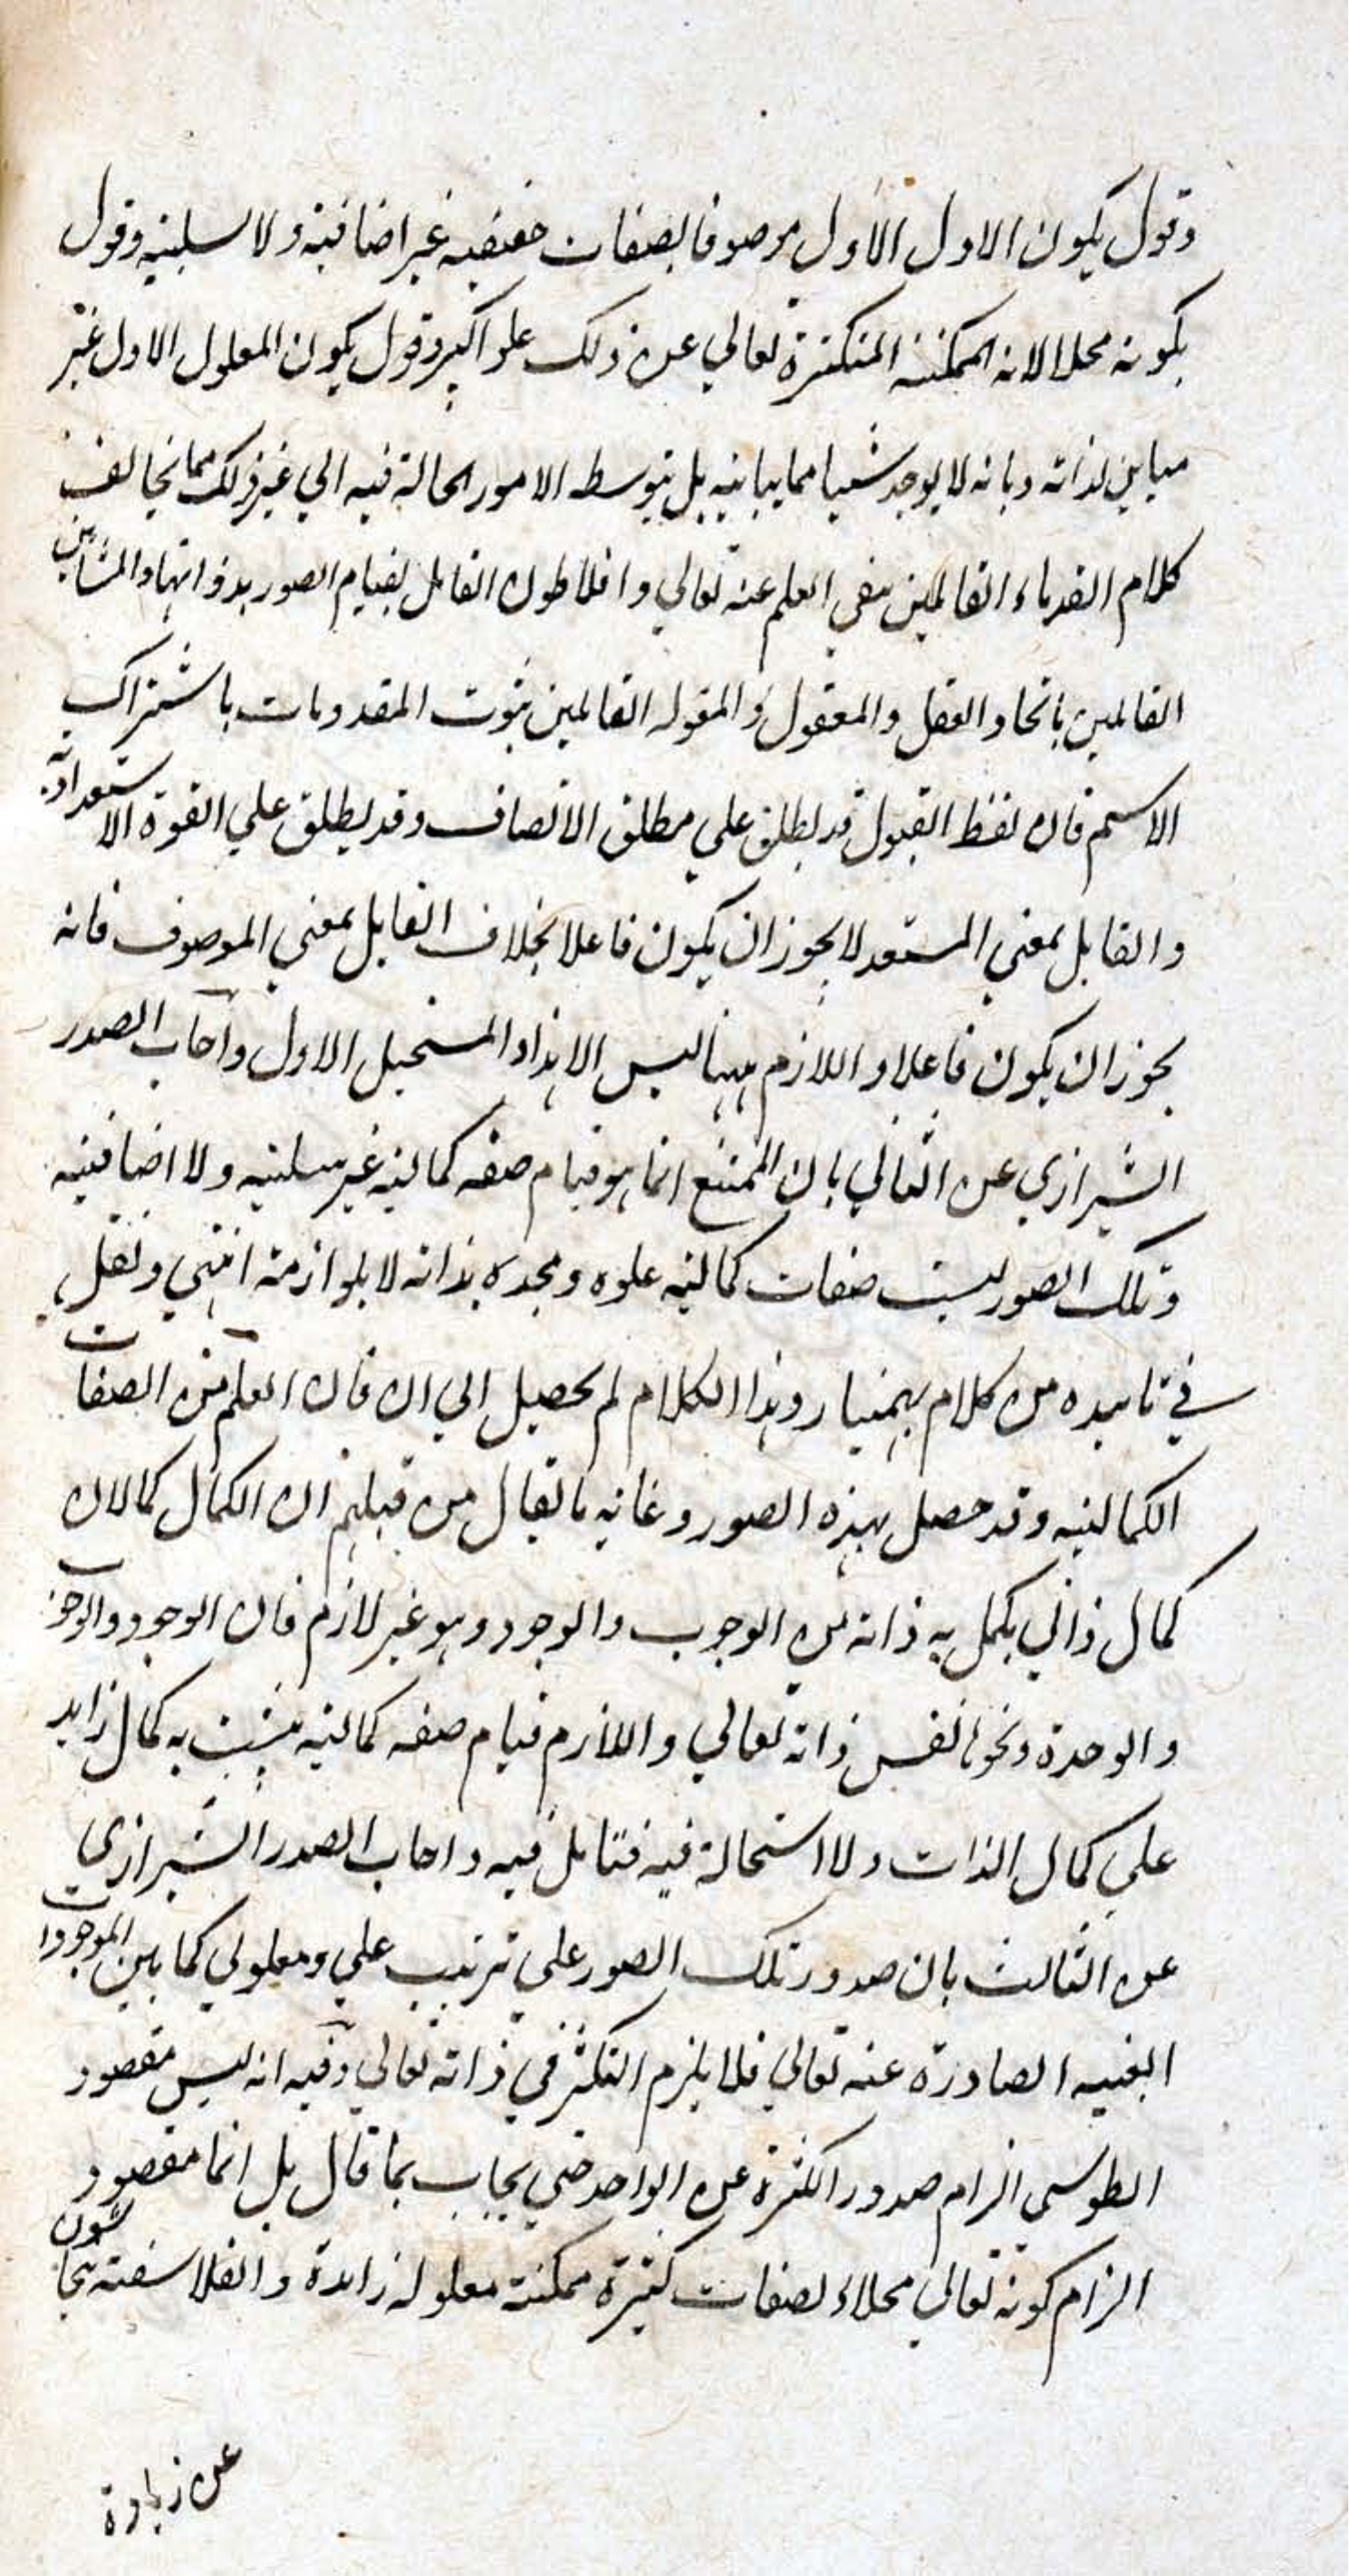 وقول بكون الاول الأول موصوفا بصفات حقيقيه غير اضافيه ولا سلبيه وقول
بكونه محلا الممكنة المتكثرة تعالي عن ذلك علوا كبيرا وقول بكون المعلول الاول غير
مباين لذاته وبانه لا يوجد شيا مما يباينه بل بتوسط الامور الحالة فيه الي غير ذلك مما يخالف
كلام القدماء القائلين بنفي العلم عنه تعالي وافلاطون القايل بقيام الصور بذواتها والمشائين
القائلين باتحاد العقل والمعقول والمعتزله القائلين بثبوت المعدومات باشتراك
الاسم فان لفظ القبول قد يطلق علي مطلق الاتصاف وقد يطلق علي القوة الاستعدادية
والقابل بمعني المستعد لا يجوز ان يكون فاعلا بخلاف القابل بمعني الموصوف فانه
يجوز ان يكون فاعلا واللازم ههنا ليس الا هذا المستحيل الاول واجاب الصدر
الشيرازي عن الثاني بان الممتنع انما هو قيام صفه كماليه غير سلبيه ولا اضافيه
وتلك الصور ليست صفات كماليه علوه ومجده بذاته لا بلوازمه انتهي ونقل
في تاييده من كلام بهمنيار وهذا الكلام لم يحصل الي الان فان العلم من الصفات
الكماليه وقد حصل بهذه الصور وغايه ما يقال من قبلهم ان الكمال كمالان
كمال ذاتي يكمل به ذاته من الوجوب والوجود وهو غير لازم فان الوجود والوجوب
والوحدة ونحوها نفس ذاته تعالي واللازم قيام صفه كماليه يثبت به كمال زايد
علي كمال الذات ولا استحالة فيه فتامل فيه واجاب الصدر الشيرازي
عن الثالث بان صدور تلك الصور علي ترتيب علي ومعلولي كما بين الموجودات
العينيه الصادرة عنه تعالي فلا يلزم التكثر في ذاته تعالي وفيه انه ليس مقصود
الطوسي الزام صدور الكثرة عن الواحد حتي يجاب بما قال بل انما مقصود
الزام كونه تعالي محلا لصفات كثيرة ممكنة معلوله زايدة والفلاسفة يتحاشون
عن زيادة